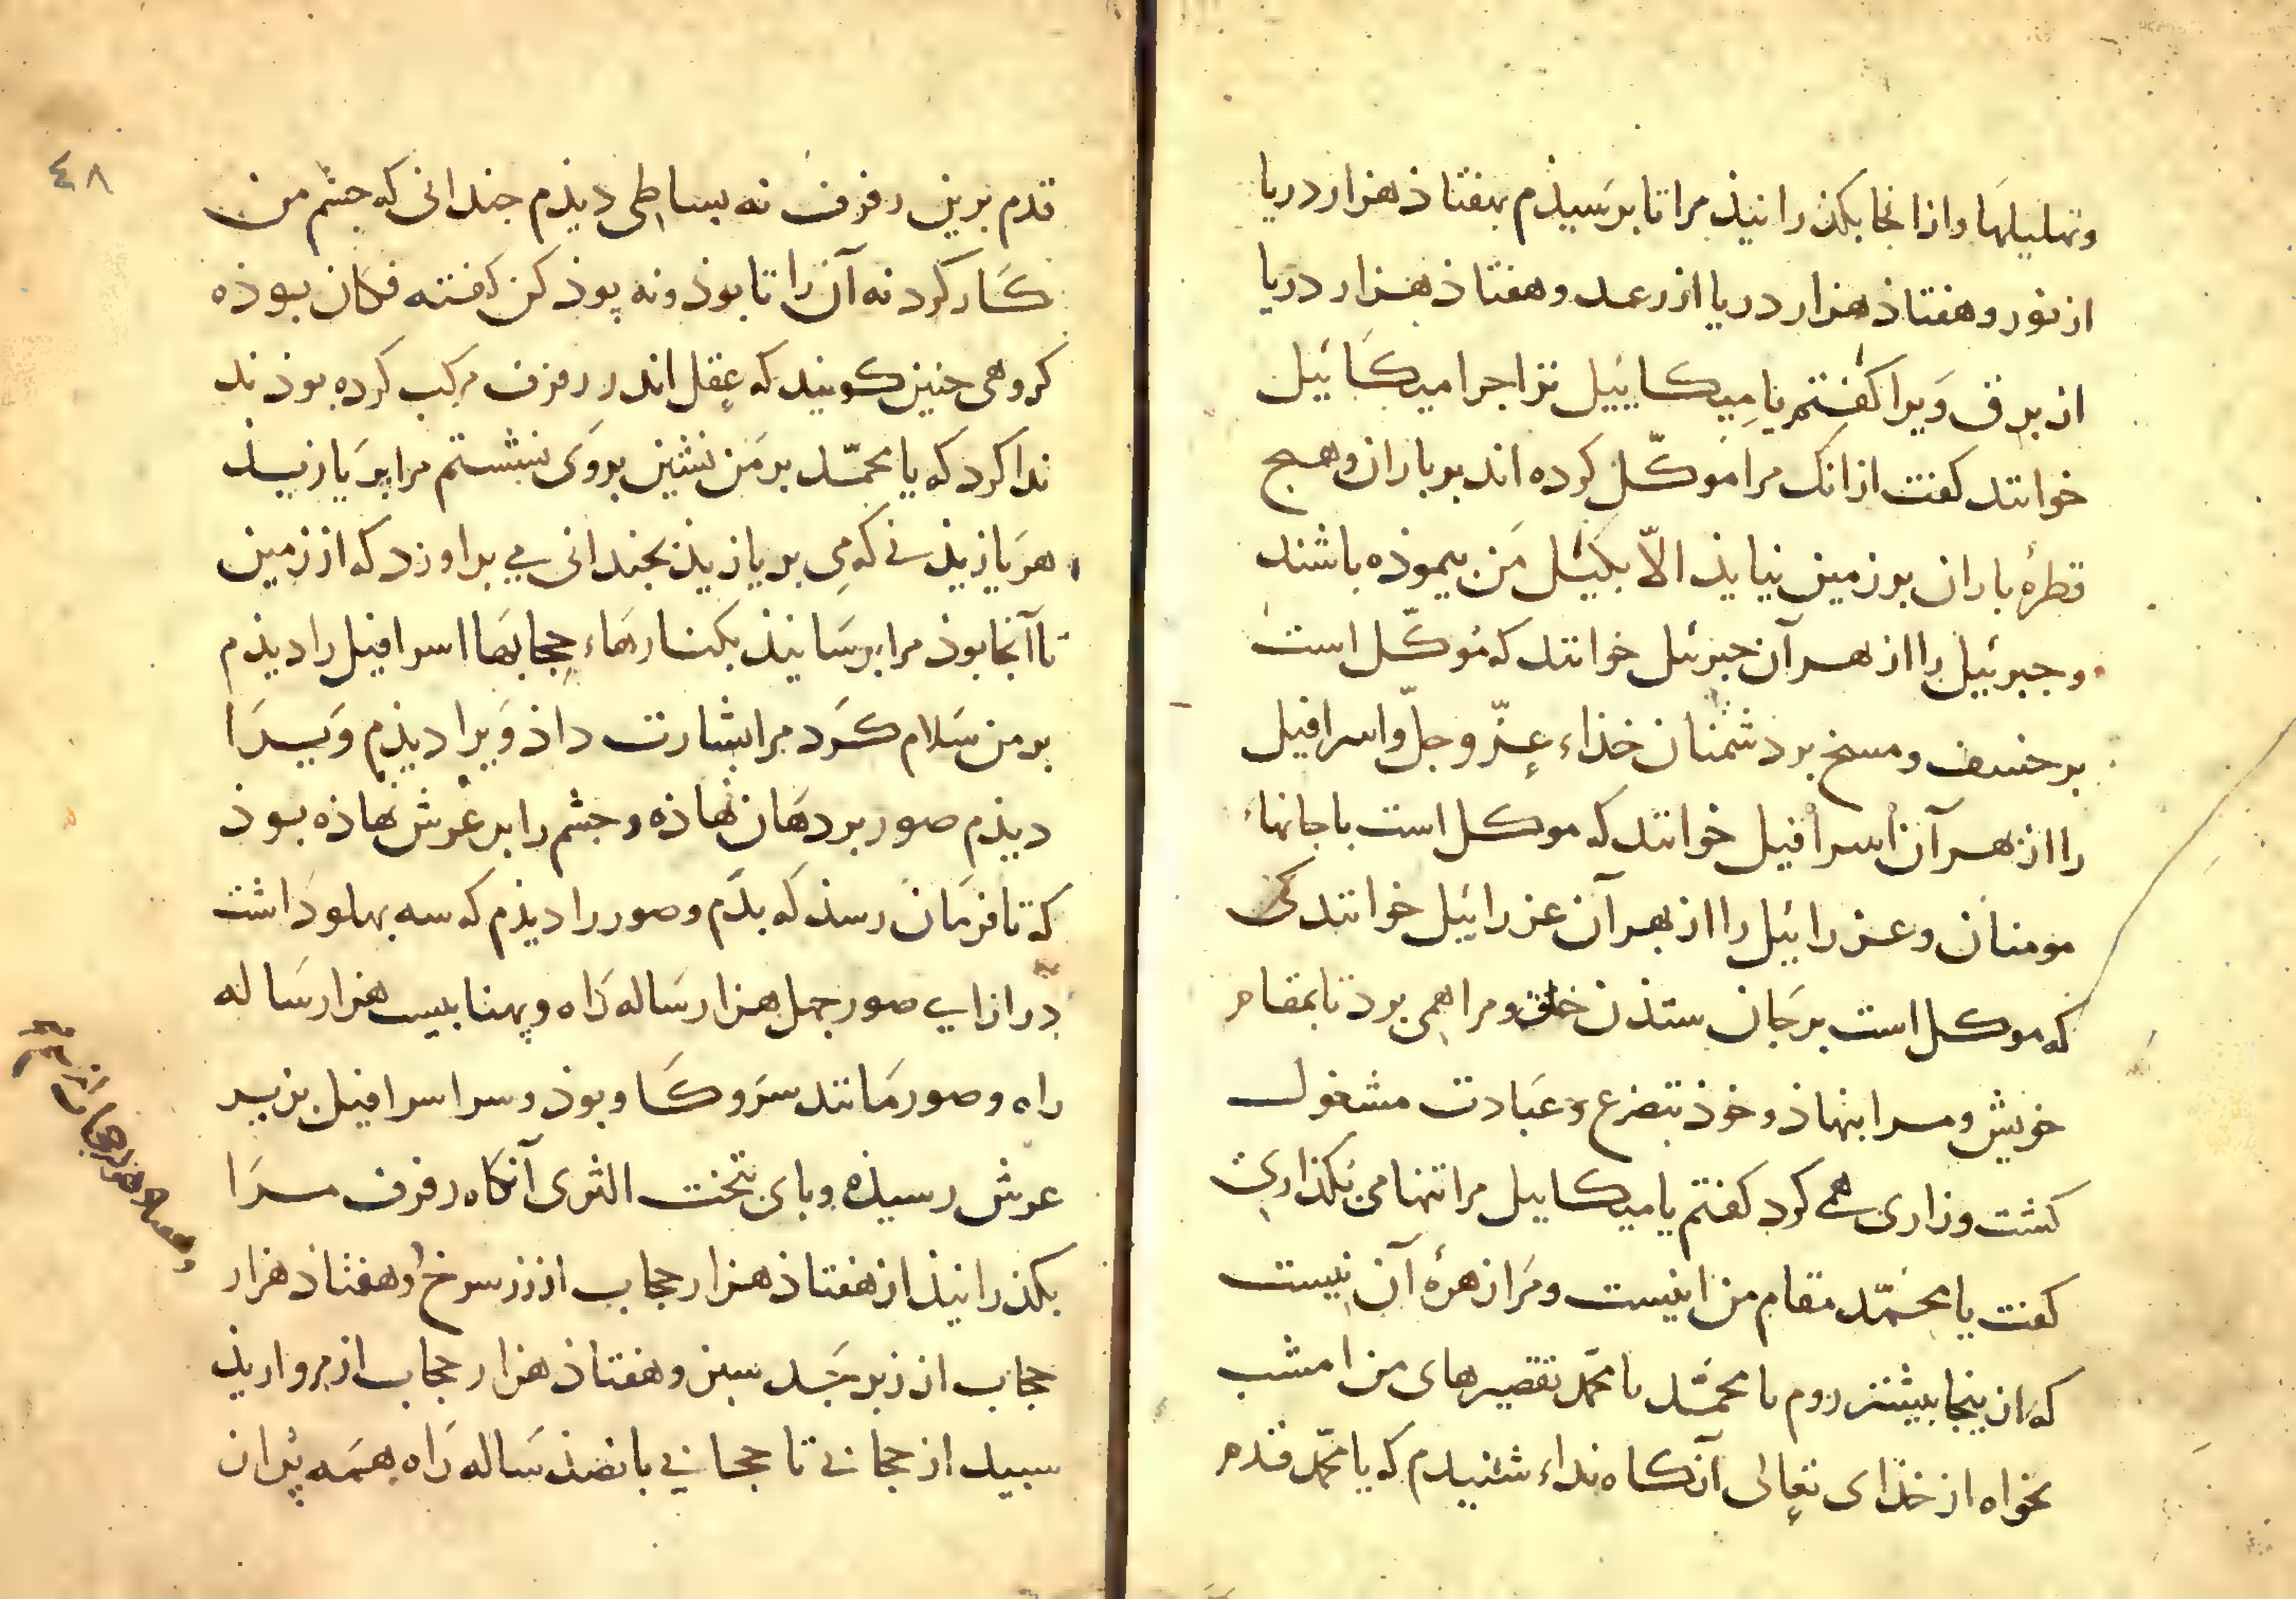 وتهلیلها واز انجا بکذرانیذ مرا تا برسیذم بهفتاذ هزار دریا
از نور و هفتاذ هزار دریا از رعد و هفتاذ هزار دریا
از برق ویرا کفتم یا میکاییل ترا جرا میکائیل
خوانند کفت ازانک مرا موکّل کرده اند بر باران و هیج
قطرهٔ باران بر زمین نیایذ الّا بکیل من بیموذه باشند
و جبرئیل را از بهر آن جبرئیل خوانند که موکّل است
بر خسف و مسخ بر دشمنان خذاء عزّ و جلّ و اسرافیل
را از بهر آن اسرافیل خوانند که موکل است با جانهاء
مومنان و عزرائیل را از بهر آن عزرائیل خوانند کی
که موکل است بر جان ستذن خلق و مرا همی برد تا بمقام
خویش و مرا بنهاذ و خوذ بتضرع و عبادت مشغول
کشت و زاری همی کرد کفتم یا میکاییل مرا تنها می بکذاری
کفت یا محمّد مقام من اینیست و مرا زهرهٔ آن نیست
که از ینجا بیشتر روم یا محمّد یا محمّد تقصیرهای من امشب
بخواه از خذای تعالی آنکاه نداء شنیدم که یا محمّد قدم
٤٨
قدم برین رفرف نه بساطی دیذم جندانی که جشم من
کار کرد نه آن را تا بوذ و نه پوذ کن کفته فکان بوذه
کروهی جنین کویند که عقل اندر رفرف مرکب کرده بوذند
ندا کرد که یا محمّد بر من نشین بر وی بنشستم مرا بر یازیذ
هر یازیذنی که می بر یازیذ بجندانی می براورد که از زمین
تا آنجا بوذ مرا برسانیذ بکنارهاء حجابها اسرافیل را دیذم
بر من سلام کرد مرا بشارت داذ ویرا دیذم ویرا
دیذم صور بر دهان نهاذه و جشم را بر عرش نهاذه بوذ
که تا فرمان رسذ که بدَم و صور را دیذم که سه بهلو داشت
درازایی صور جهل هزار ساله راه و پهنا بیست هزار ساله
راه و صور مانند سرو کاو بوذ و سر اسرافیل بزیر
عرش رسیذه و بای بتحت الثری آنکاه رفرف مرا
بکذرانیذ از هفتاذ هزار حجاب از زر سرخ و هفتاذ هزار
حجاب از زبرجد سبز و هفتاذ هزار حجاب از مرواریذ
سبید از حجابی تا حجابی بانصذ ساله راه بهمه پران